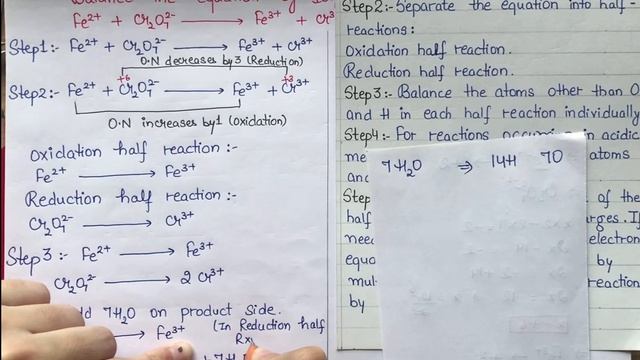 Fe²⁺ + Cr₂O₇²⁻ ⟶ Fe³⁺ + Cr³
Step1:- Fe²⁺ + Cr₂O₇²⁻ ⟶ Fe³⁺ + Cr³⁺
O.N decreases by 3 (Reduction)
+6 +3
Step2:- Fe²⁺ + Cr₂O₇²⁻ ⟶ Fe³⁺ + Cr³⁺
O.N increases by 1 (Oxidation)
Oxidation half reaction :-
Fe²⁺ ⟶ Fe³⁺
Reduction half reaction :-
Cr₂O₇²⁻ ⟶ Cr³⁺
Step3 :- Fe²⁺ ⟶ Fe³⁺
Cr₂O₇²⁻ ⟶ 2 Cr³⁺
7H₂O on product side.
⟶ Fe³⁺ (In Reduction half
Step2:- Separate the equation into half-
reactions:
Oxidation half reaction.
Reduction half reaction.
Step3 :- Balance the atoms other than O
and H in each half reaction individually
Step4:- For reactions in acidic
atoms
7H₂O ⇒ 14H 7O
Step of the
half
electron
by
reaction
by